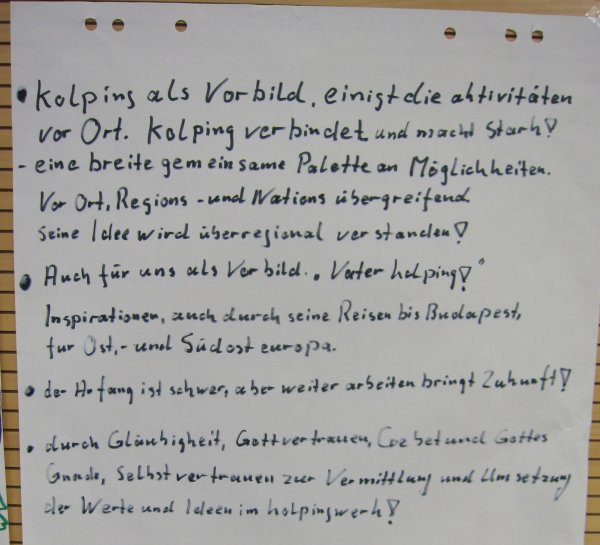 • Kolping als Vorbild, einigt die aktivitäten
vor Ort. Kolping verbindet und macht Stark!
- eine breite gemeinsame Palette an Möglichkeiten.
Vor Ort, Regions - und Nations übergreifend
Seine Idee wird überregional verstanden!
• Auch für uns als Vorbild. „Vater kolping!"
Inspirationen, auch durch seine Reisen bis Budapest,
für Ost,- und Südosteuropa.
• der Anfang ist schwer, aber weiter arbeiten bringt Zukunft!
• durch Gläubigkeit, Gottvertrauen, Gebet und Gottes
Gnade, Selbstvertrauen zur Vermittlung und Umsetzung
der Werte und Ideen im kolpingwerk!